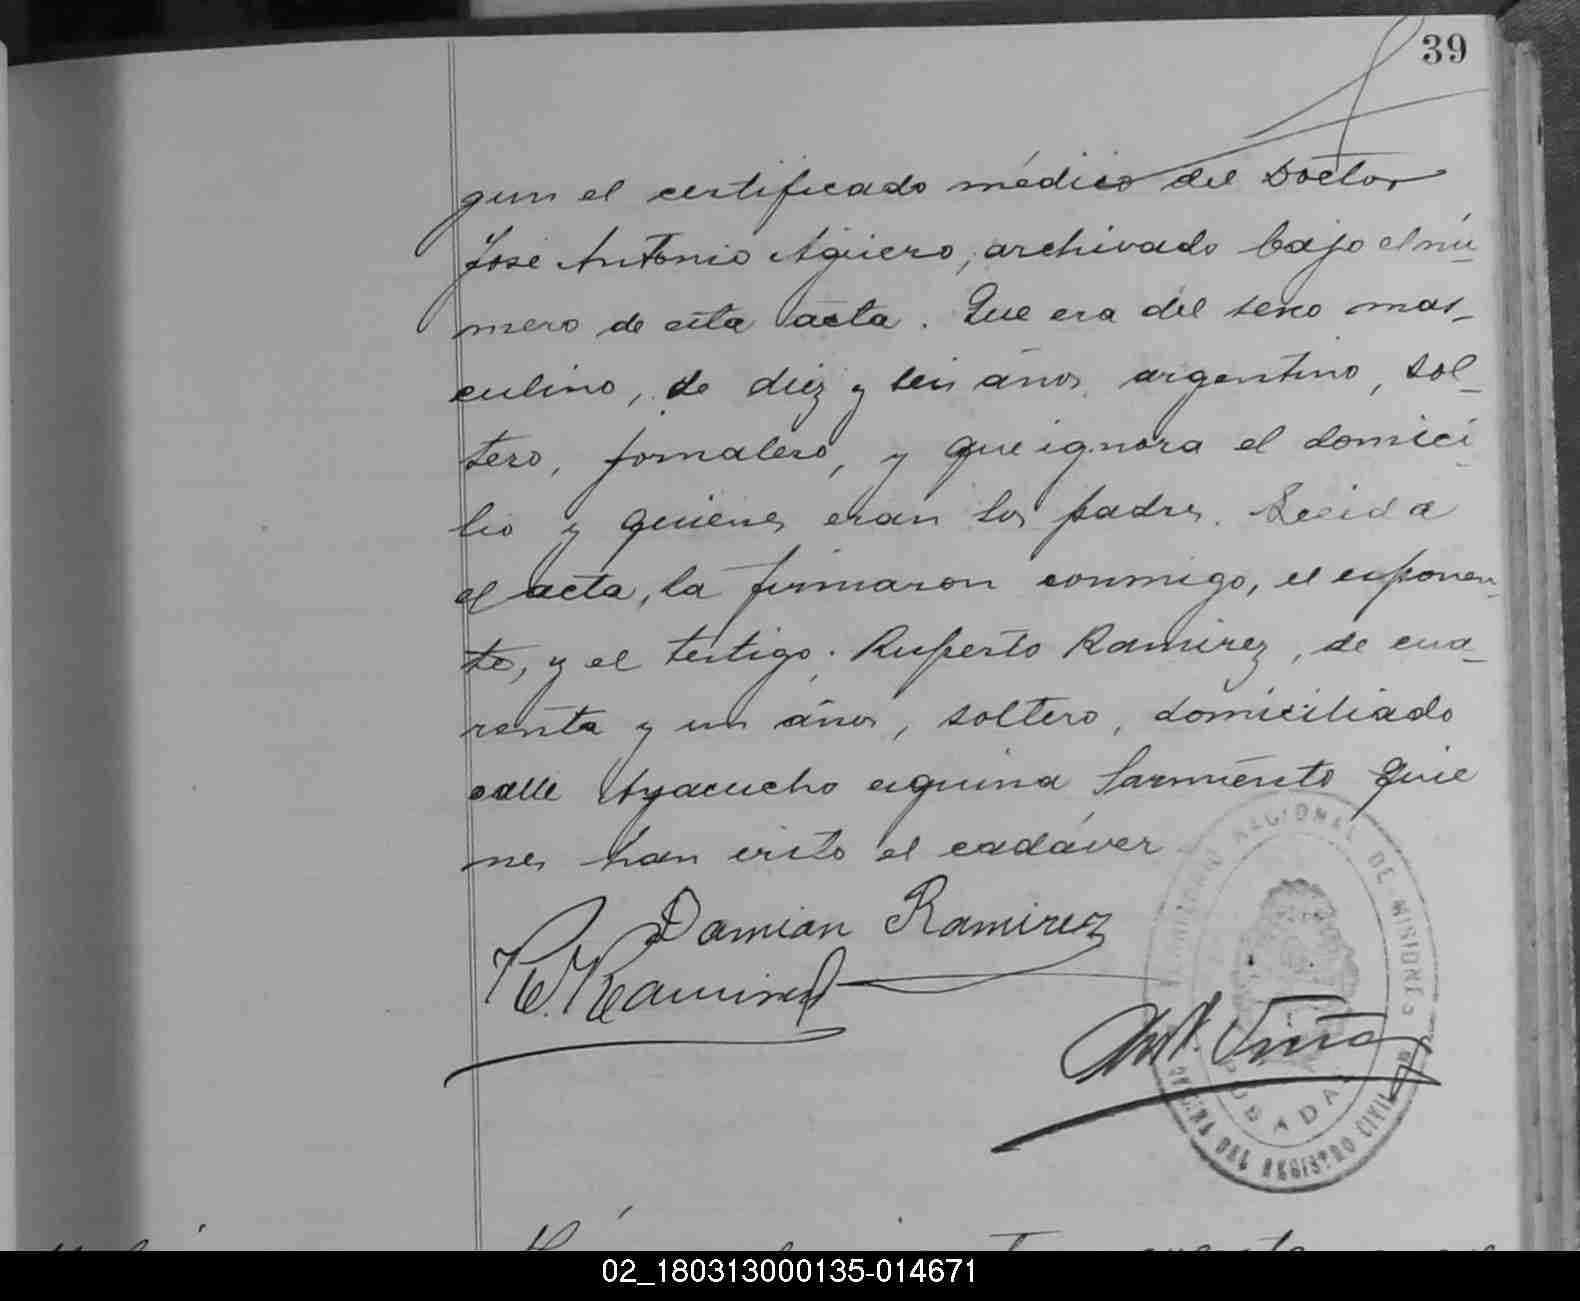 39
gun el certificado médico del Doctor
José Antonio Agüero, archivado bajo el nú-
mero de esta acta. Que era del sexo mas-
culino, de diez y seis años, argentino, sol-
tero, jornalero, y que ignora el domici-
lio y quienes eran los padres. Leida
el acta, la firmaron conmigo, el exponen-
te, y el testigo: Ruperto Ramirez, de cua-
renta y un años, soltero, domiciliado
calle Ayacucho esquina Sarmiento quie
nes han visto el cadáver
Damian Ramirez
R. Ramirez
TERRITORIO NACIONAL DE MISIONES
POSADAS
OFICINA DEL REGISTRO CIVIL
02_180313000135-014671